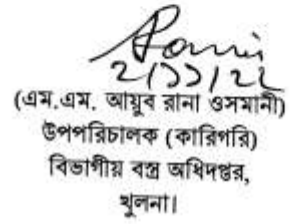 ২/১১/২২
(এম.এম. আয়ুব রানা ওসমানী)
উপপরিচালক (কারিগরি)
বিভাগীয় বস্ত্র অধিদপ্তর,
খুলনা।